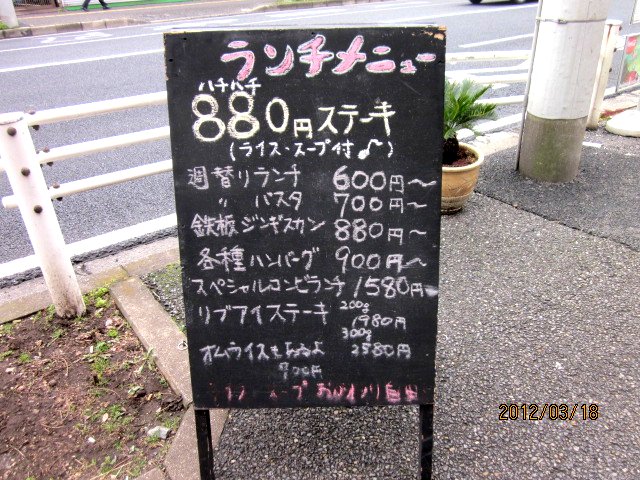 ランチメニュー
ハチハチ
880円ステーキ
(ライス・スープ付♪)
週替リランチ 600円〜
〃 パスタ 700円〜
鉄板ジンギスカン 880円〜
各種ハンバーグ 900円〜
スペシャルコンビランチ 1580円〜
リブアイステーキ 200g 1980円
300g 2580円
オムライスもあるよ
900円
スープ おかわり自由
2012/03/18